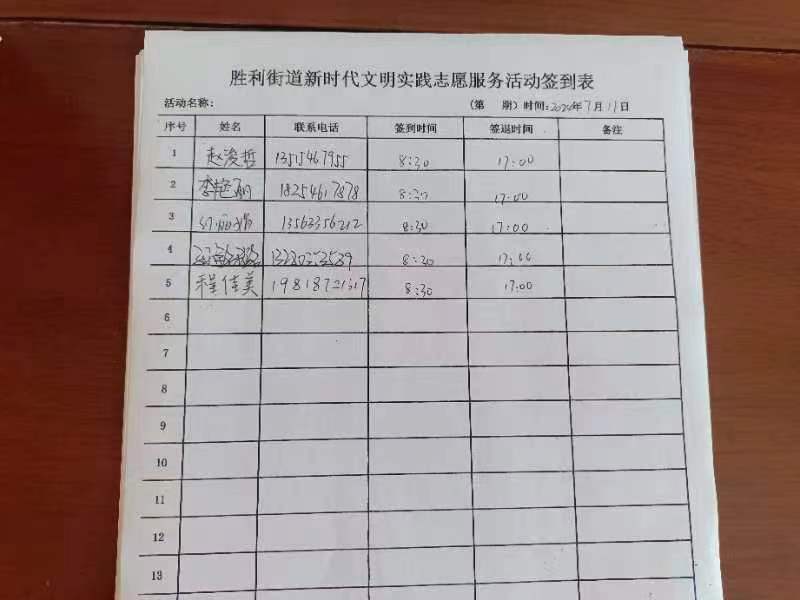 胜利街道新时代文明实践志愿服务活动签到表
活动名称: (第 期) 时间: 2024年7月11日
序号 姓名 联系电话 签到时间 签退时间 备注
1 赵浚哲 13515467955 8:30 17:00
2 李艳丽 18254617878 8:30 17:00
3 13563356212 8:30 17:00
4 8:30 17:00
5 程佳美 19818721317 8:30 17:00
6
7
8
9
10
11
12
13